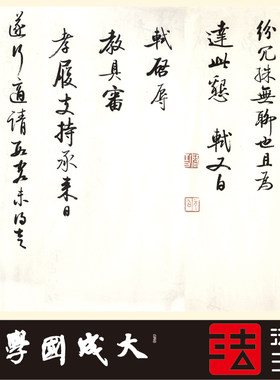 紛冗殊無聊也且為
達此懇 軾又白
軾啓辱
教具審
孝履支持承来日
遂行適請数客未得走
大成國學
法